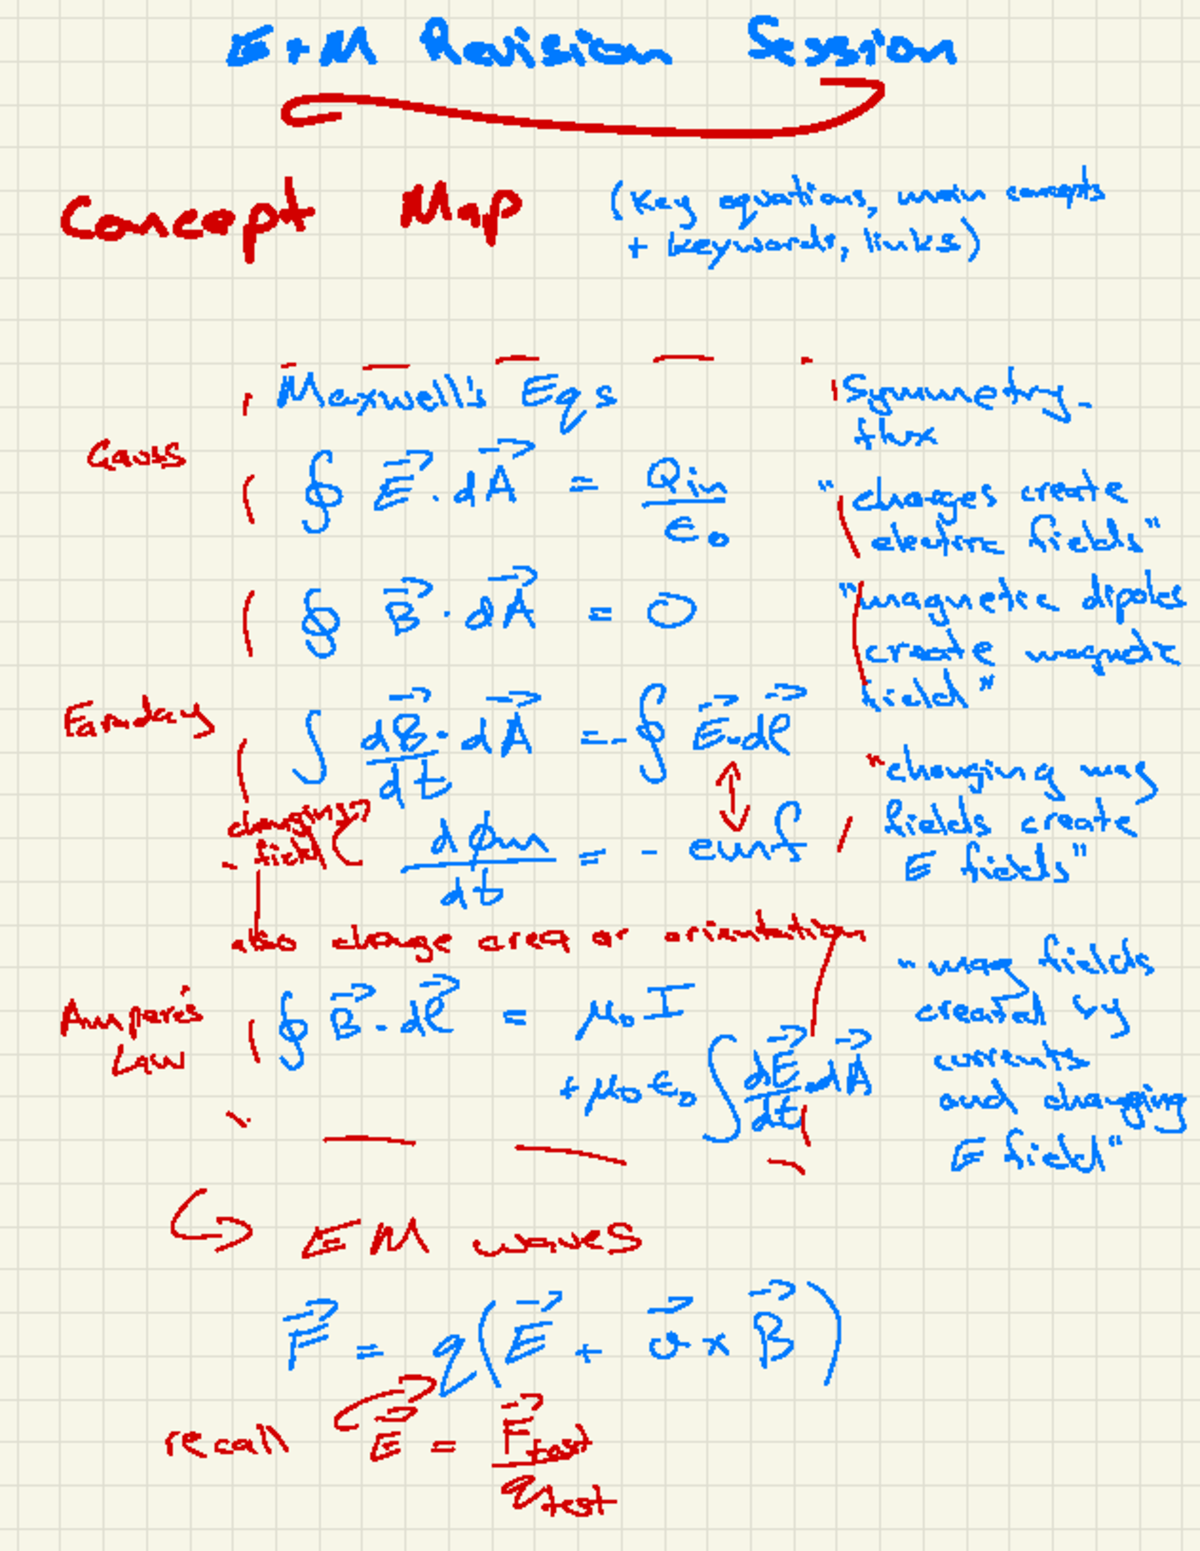 E+M Revision Session
Concept Map (Key equations, main concepts
+ keywords, links)
Maxwell's Eqs
Symmetry -
flux
Gauss
∮ E⃗ · dA⃗ = Qin/ε₀
"charges create
electric fields"
∮ B⃗ · dA⃗ = 0
"magnetic dipoles
create magnetic
field"
Faraday
∫ dB⃗/dt · dA⃗ = - ∮ E⃗ · dℓ⃗
"changing mag
fields create
E fields"
changing
field
dϕm/dt = - emf
also change area or orientation
Ampere's
Law
∮ B⃗ · dℓ⃗ = μ₀ I
+ μ₀ ε₀ ∫ dE⃗/dt · dA⃗
"mag fields
created by
currents
and changing
E field"
↪ EM waves
F⃗ = q(E⃗ + v⃗ × B⃗)
recall E⃗ = F⃗test/qtest